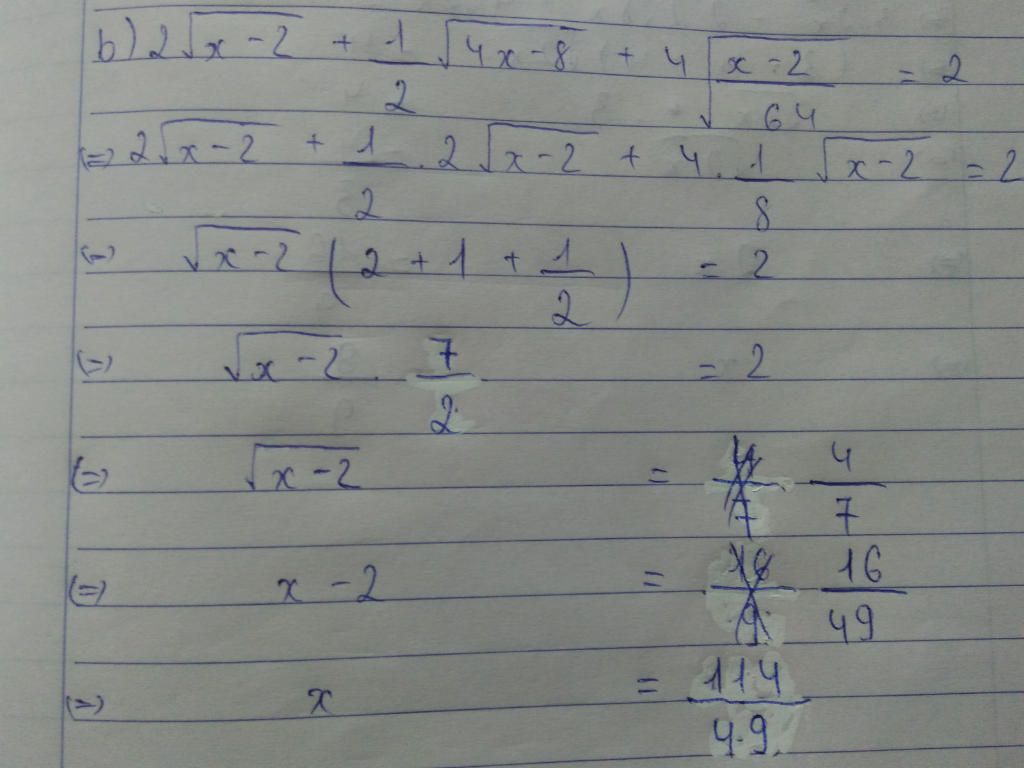 b) 2√(x-2) + 1/2 √(4x-8) + 4√((x-2)/64) = 2
(=) 2√(x-2) + 1/2 . 2√(x-2) + 4 . 1/8 √(x-2) = 2
(=) √(x-2) (2 + 1 + 1/2) = 2
(=) √(x-2) . 7/2 = 2
(=) √(x-2) = 4/7
(=) x - 2 = 16/49
(=) x = 114/49